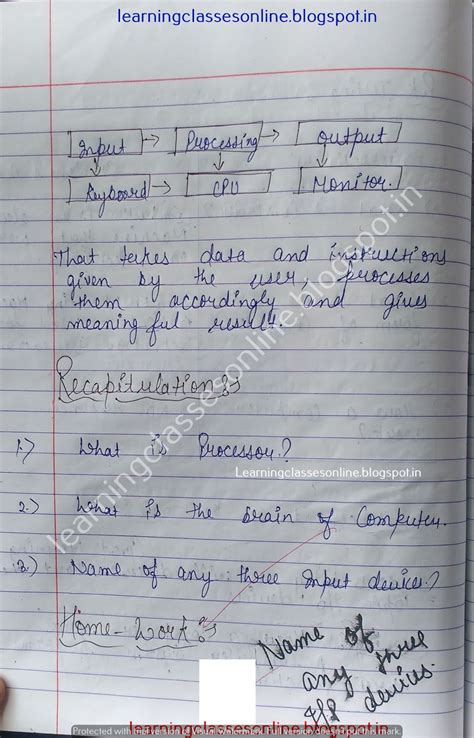 learningclassesonline.blogspot.in
Input → Processing → Output
Keyboard → CPU Monitor.
That takes data and instructions
given by the user, processes
them accordingly and gives
meaningful result.
Recapitulation:
1.) What is Processor?
Learningclassesonline.blogspot.in
2.) What is the brain of Computer.
3.) Name of any three Input device?
Home-Work:
Name of
any three
devices.
learningclassesonline.blogspot.in
Protected with free version of Visual Watermark. Full version doesn't put this mark.
learningclassesonline.blogspot.in